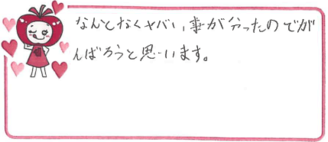 なんとなくヤバい事が分ったのでが
んばろうと思います。